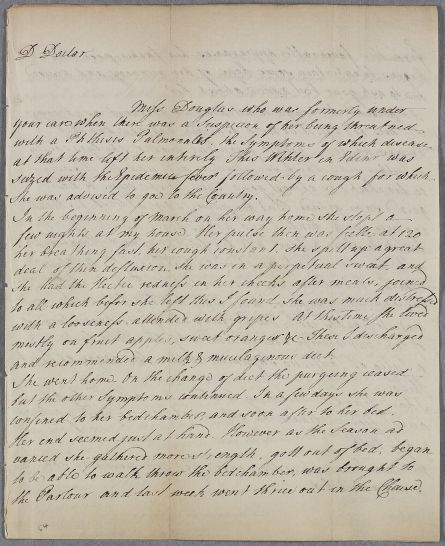 D Doctor
Miss Douglas who was formerly under
your care when there was a Suspicion of her being threatned
with a Phthisis Pulmonalis, the Symptoms of which disease
at that time left her entirely This Winter in Edinr was
seized with the Epidemic fever followed by a cough for which
She was advised to goe to the Country.
In the beginning of March on her way home she stopt a
few nights at my house. Her pulse then was feeble at 120
her breathing fast, her cough constant. She spitt up a great
deal of thin defluxion, she was in a perpetual sweat, and
she had the Hectic redness in her cheeks after meals, joined
to all which befor she left this I found she was much distress'd
with a looseness, attended with gripes At this time she lived
mostly on fruit apples, sweet oranges &c These I discharged
and recommended a milk & mucilaginous diet.
She went home. On the change of diet the purgeing ceased
but the other Symptoms continued. In a few days she was
confined to her bedchamber and soon after to her bed.
Her end seemed just at hand. However as the Season ad
vanced she gathered more strength, gott out of bed, began
to be able to walk throw the bedchamber, was brought to
the Parlour and last week went thrice out in the Chaise.